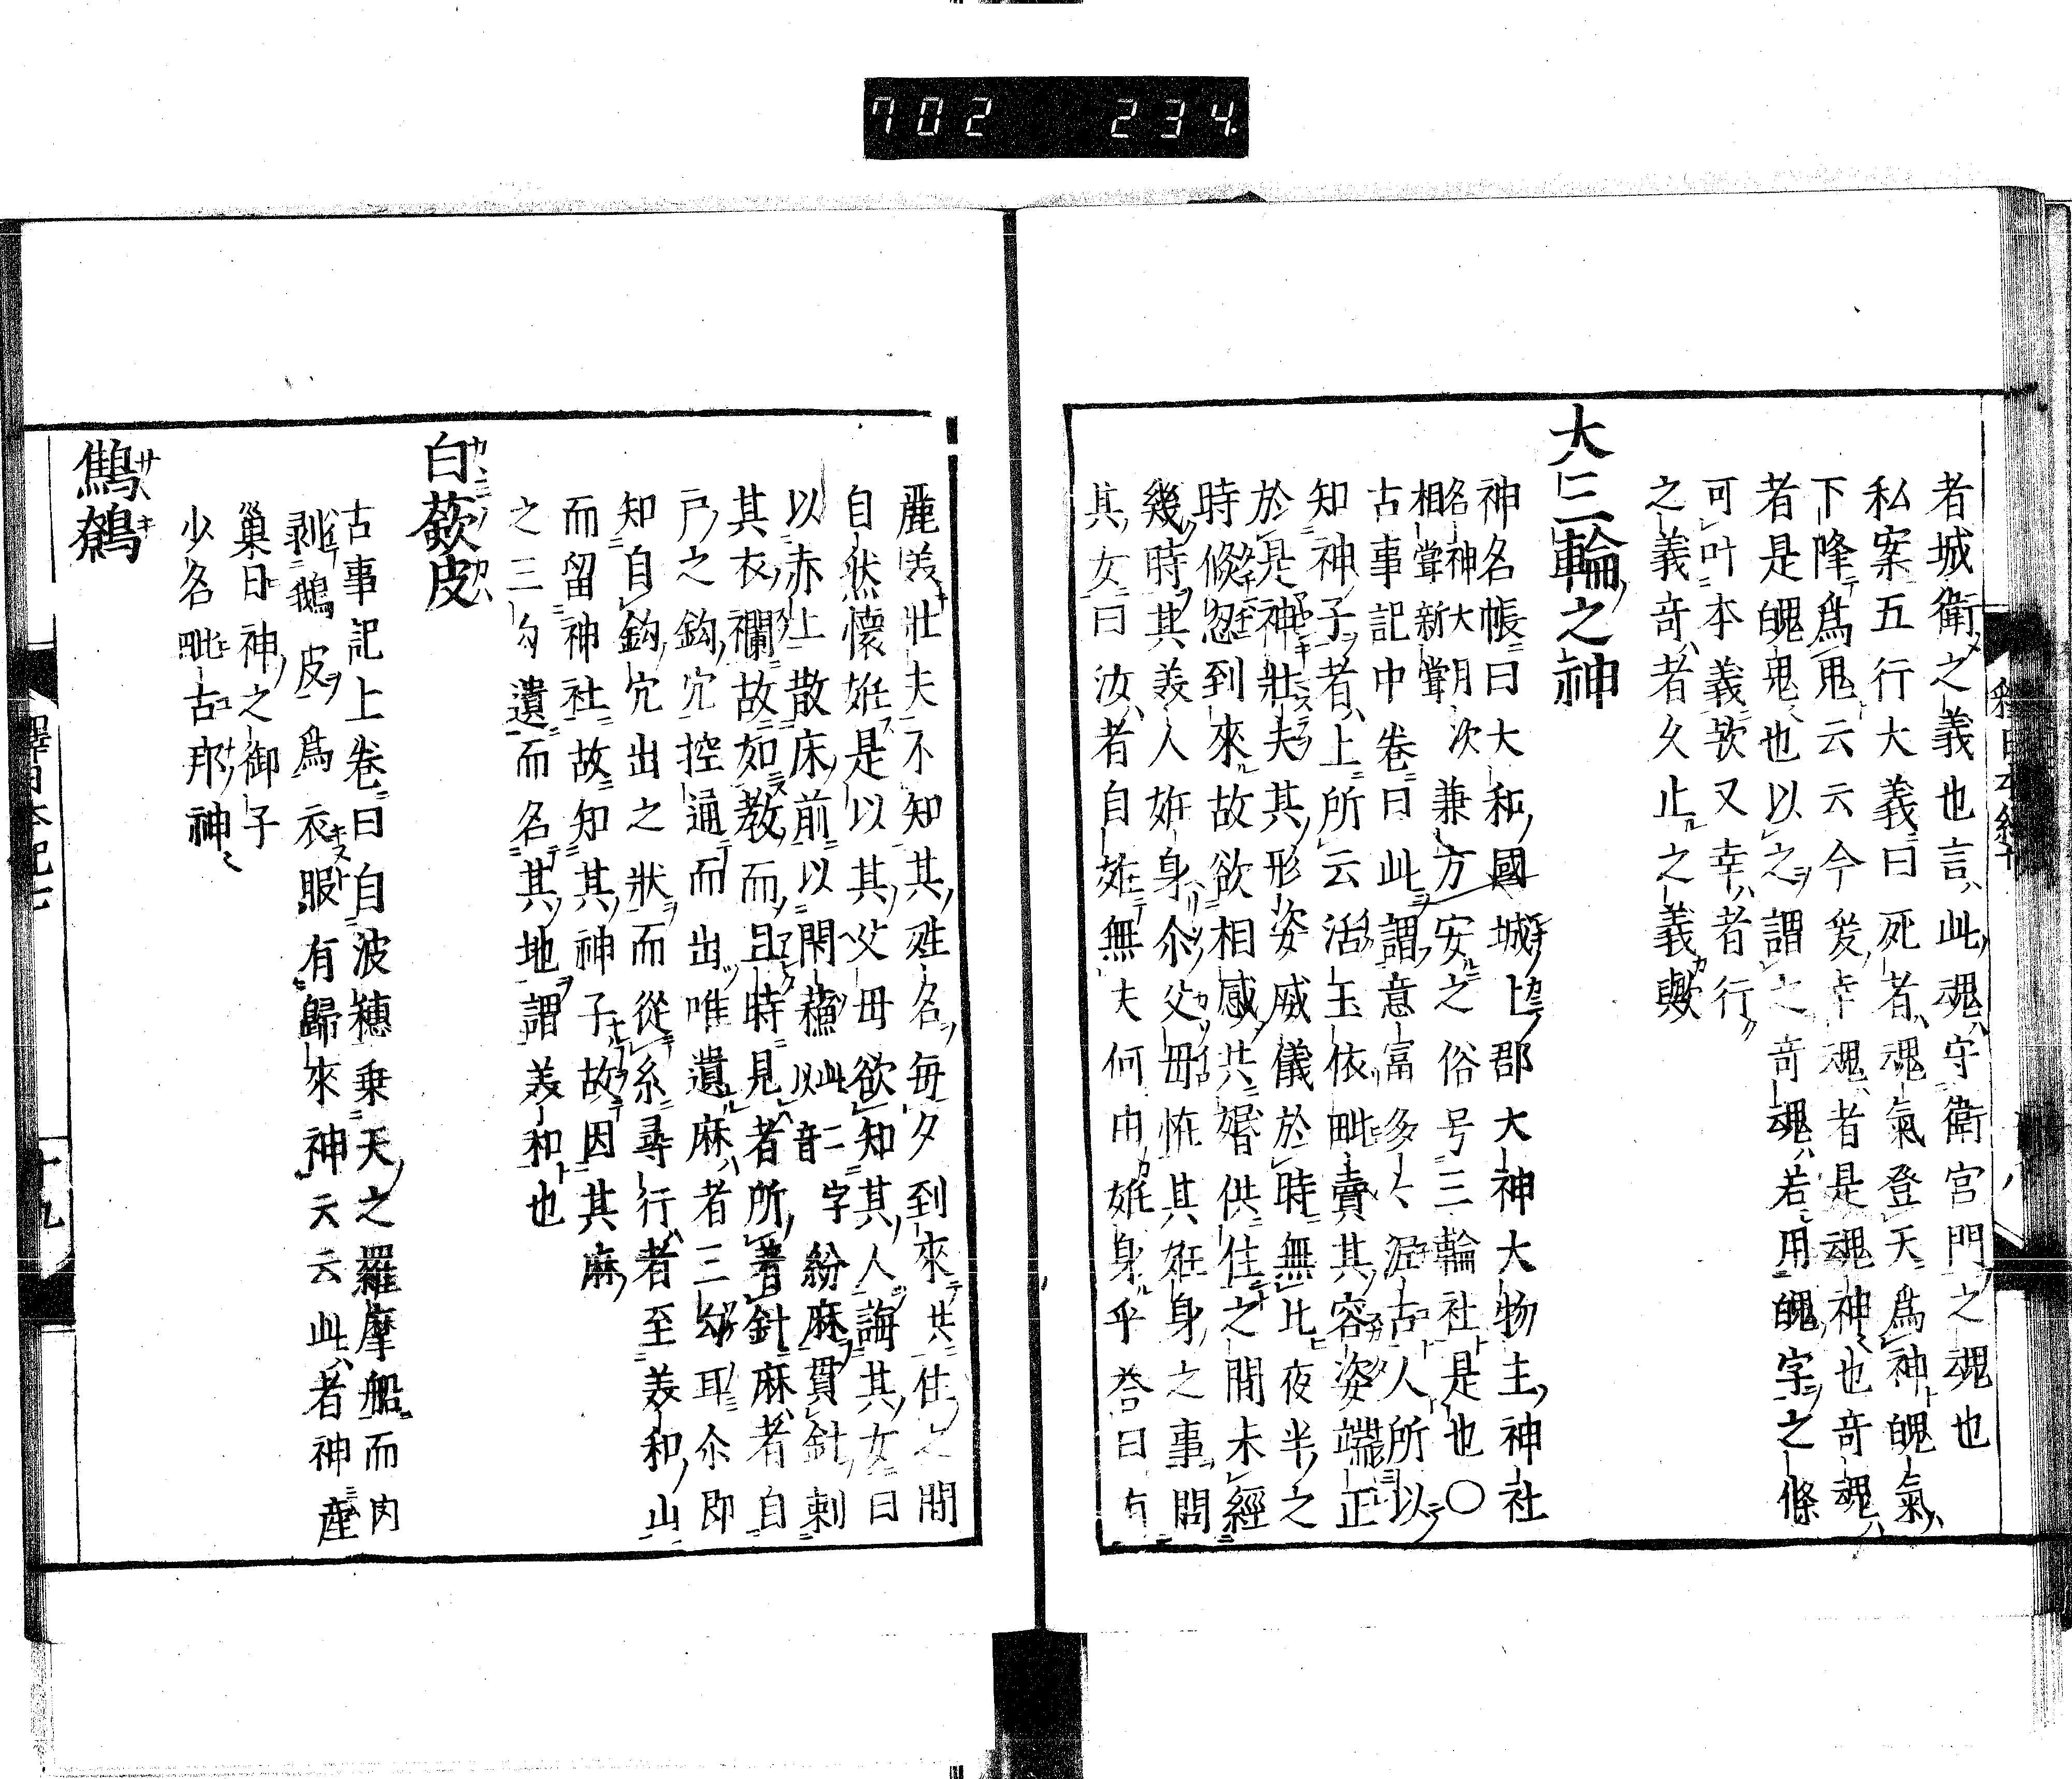 702 234
者城衛之義也言此魂守衛宮門之魂也
私案五行大義曰死者魂氣登天爲神魄氣
下降爲鬼云云今爰幸魂者是魂神也奇魂
者是魄鬼也以之謂之奇魂若用魄字之條
可叶本義歟又幸者行
之義奇者久止之義歟
大三輪之神
神名帳曰大和國城上郡大神大物主神社
名神大月次
相嘗新嘗
兼方安之俗号三輪社是也〇
古事記中卷曰此謂意富多々泥古人所以
知神子者上所云活玉依毗賣其容姿端正
於是神壯夫其形姿威儀於時無比夜半之
時倏忽到來故欲相感共婚供住之間未經
幾時其美人妊身尒父母恠其妊身之事問
其女曰汝者自妊無夫何由妊身乎答曰有
麗美壯夫不知其姓名每夕到來共住之間
自然懷妊是以其父母欲知其人誨其女曰
以赤土散床前以閇蘓此二字以音紡麻貫針刺
其衣襴故如教而旦時見者所著針麻者自
戸之鈎穴控通而出唯遺麻者三勾耳尒即
知自鈎穴出之狀而從糸尋行者至美和山
而留神社故知其神子故因其麻
之三勾遺而名其地謂美和也
白蘞皮
カヾミノカハ
古事記上卷曰自波穗乗天之羅摩船而内
剥鵝皮爲衣服有歸來神云云此者神産
巢日神之御子
少名毗古那神
鷦鷯
サヽキ
釋日本紀七
十九